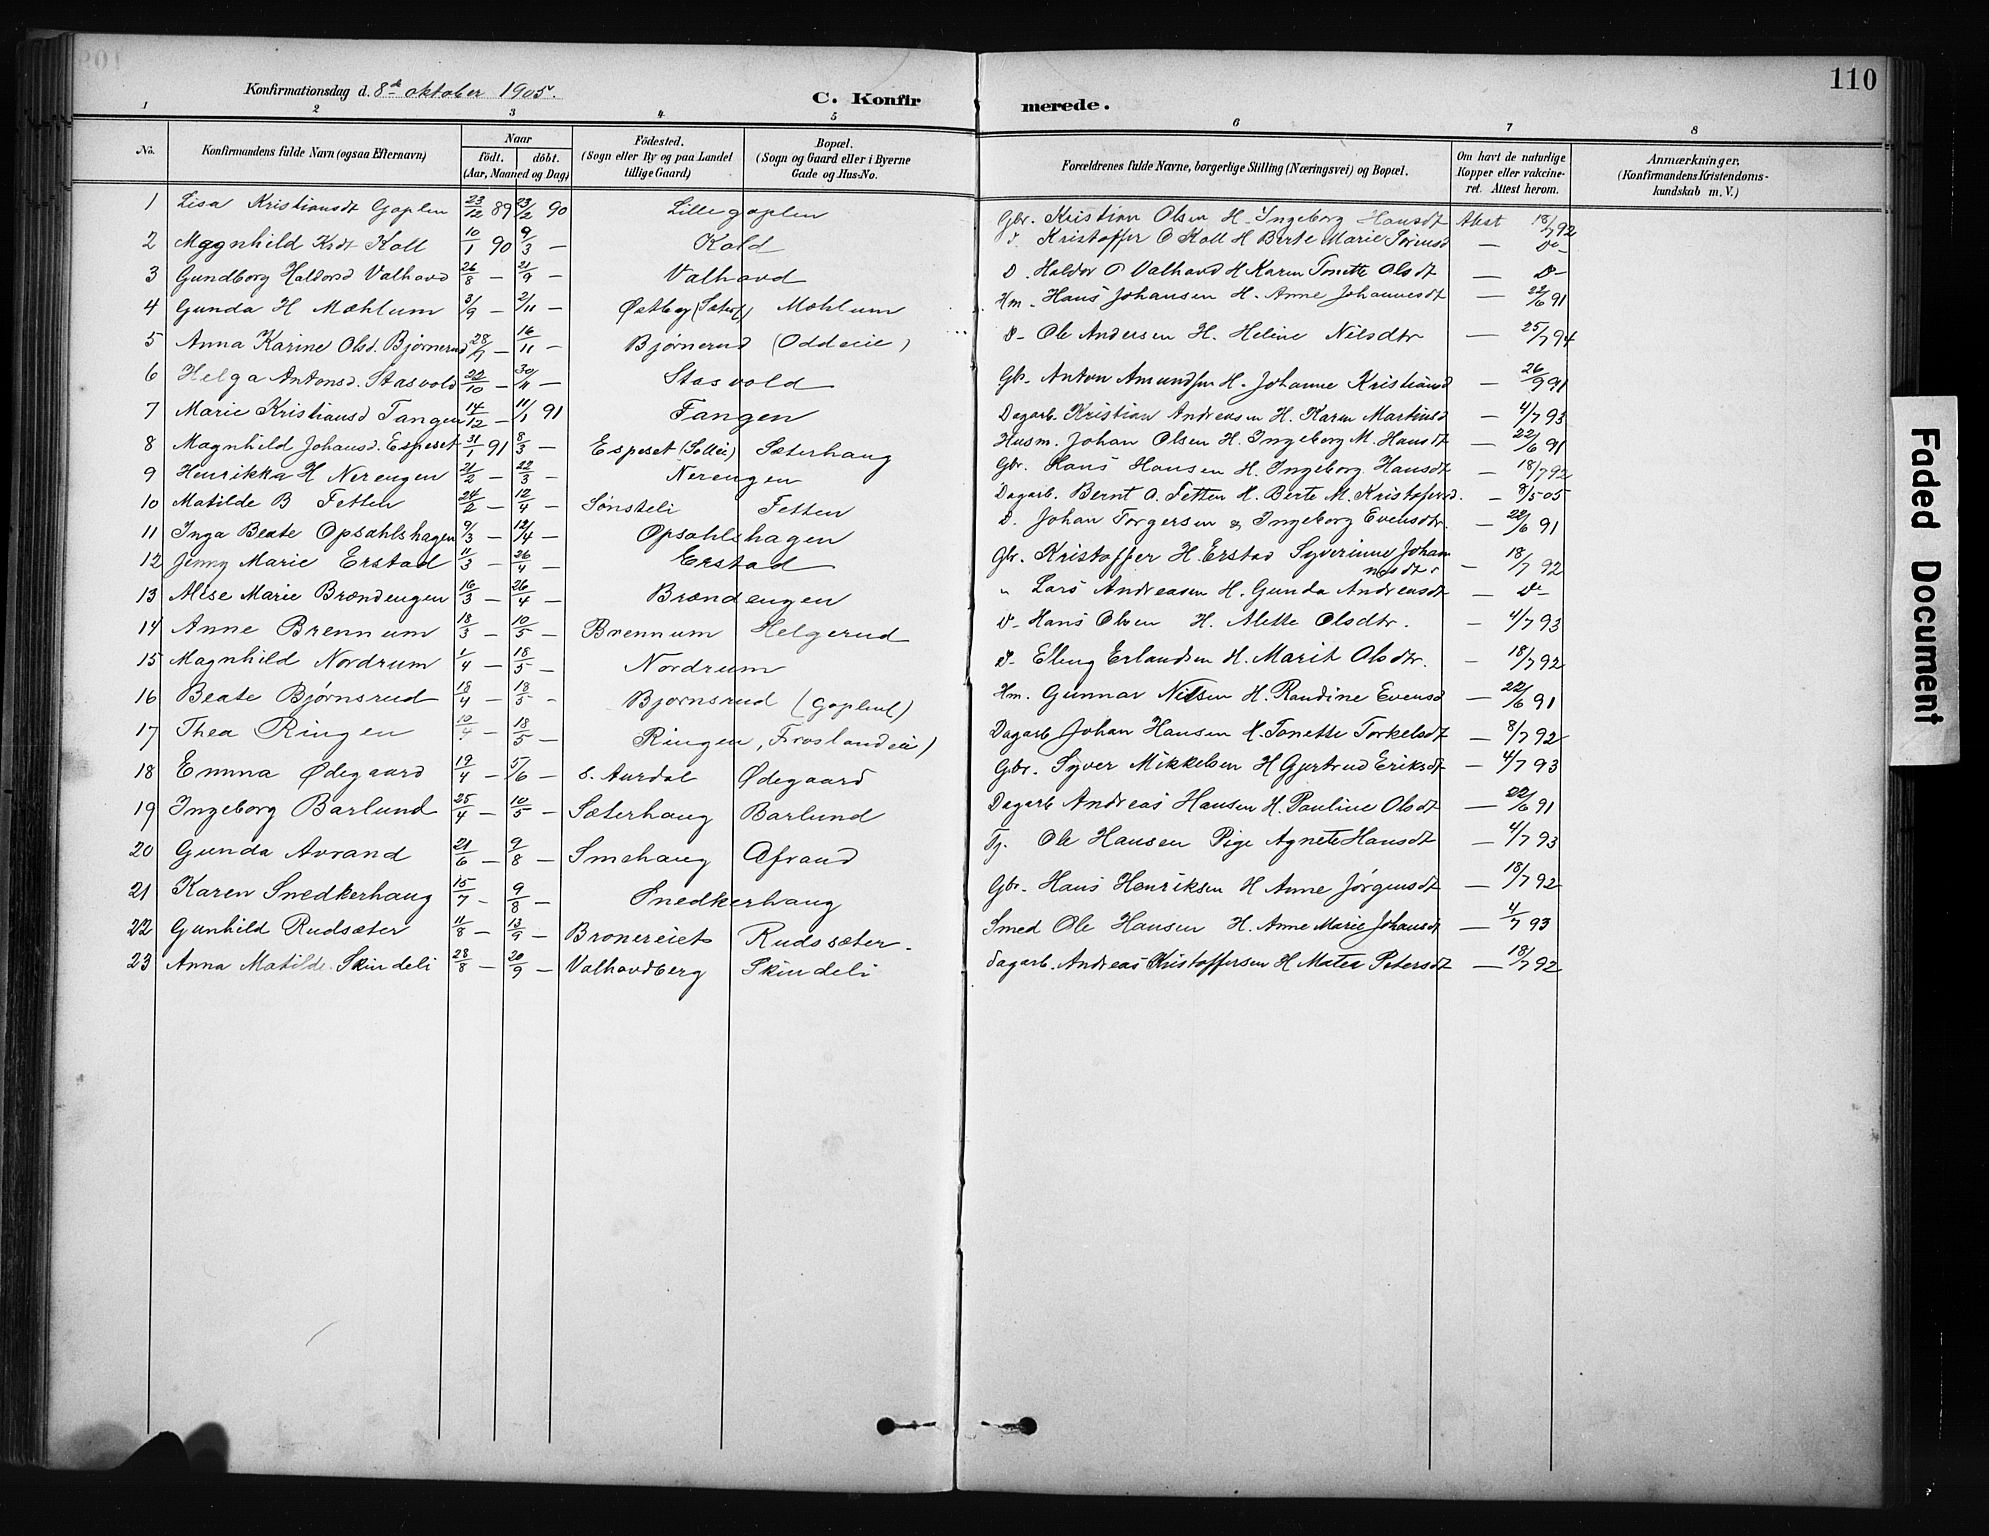 110
Konfirmationsdag d. 8de oktober 1905.
C. Konfirmerede.
1 2 3 4 5 6 7 8
No.
Konfirmandens fulde Navn (ogsaa Efternavn)
Naar
födt. döbt.
(Aar, Maaned og Dag)
Födested.
(Sogn eller By og paa Landet
tillige Gaard)
Bopæl.
(Sogn og Gaard eller i Byerne
Gade og Hus-No.
Forældrenes fulde Navne, borgerlige Stilling (Næringsvei) og Bopæl.
Om havt de naturlige
Kopper eller vakcine-
ret. Attest herom.
Anmærkninger,
(Konfirmandens Kristendoms-
kundskab m. V.)
1 Lisa Kristiansdt Goplen 23/12 89 23/2 90 Lillegoplen Gbr. Kristian Olsen H. Ingeborg Hansdt Attest 18/7 92
2 Magnhild Krdt Koll 10/1 90 9/3 — Kold Kristoffer O Koll H Berte Marie Sørensd — Do
3 Gundborg Haldorsd Valhovd 26/8 — 21/9 — Valhovd D. Haldor O Valhovd H Karen Tonette Olsdt — D-
4 Gunda H Mæhlum 3/9 — 2/11 — Østbey (Sæterf) Mæhlum Hm. Hans Johansen H. Anne Johannesdt — 22/6 91
5 Anna Karine Olsd. Bjørnerud 28/7 — 16/11 — Bjørnerud (Oddeie) D- Ole Andersen H. Heline Nilsdtr — 25/7 94
6 Helga Antonsd. Stasvold 22/10 — 30/11 — Stasvold Gb. Anton Amundsen H. Johanne Kristiansd — 26/9 91
7 Marie Kristiansd Tangen 14/12 — 11/1 91 Tangen Dagarb. Kristian Andreasen H. Karen Martinsd — 4/7 93
8 Magnhild Johansd. Espeset 31/1 91 8/3 — Espeset (Sollii) Sæterhaug Husm. Johan Olsen H. Ingeborg M. Hansdt — 22/6 91
9 Henrikka H Nerengen 21/2 — 22/3 — Nerengen Gbr. Hans Hansen H. Ingeborg Hansdt — 18/7 92
10 Matilde B Fetten 24/2 — 12/4 — Sønsteli Fetten Dagarb. Bernt O. Fetten H. Berte M. Kristofersd. — 8/5 05
11 Inga Beate Opsahlshagen 9/3 — 12/4 — Opsahlshagen D. Johan Torgersen & Ingeborg Evensdtr. — 22/6 91
12 Jenny Marie Erstad 11/3 — 26/4 — Erstad Gbr. Kristoffer H. Erstad Syverinne Johan
nesdtr — 18/7 92
13 Alise Marie Brændengen 16/3 — 26/4 — Brændengen " Lars Andreasen H. Gunda Andreasdt — D-
14 Anne Brennum 18/3 — 10/5 — Brennum Helgerud D- Hans Olsen H. Alette Olsdtr. — 4/7 93
15 Magnhild Nordrum 1/4 — 18/5 — Nordrum D- Elling Erlandsen H. Marit Olsdtr. — 18/7 92
16 Beate Bjørnsrud 18/4 — 18/5 — Bjørnsrud (Goplent) Hm. Gunnar Nilsen H. Randine Evensd — 22/6 91
17 Thea Ringen 10/4 — 18/5 — Ringen, Froslandeie) Dagarb Johan Hansen H. Tonette Torkelsdt — 8/7 92
18 Emma Ødegaard 19/4 — 5/6 — S. Aurdal Ødegaard Gbr. Syver Mikkelsen H Gjertrud Eriksdt — 4/7 93
19 Ingeborg Barlund 25/4 — 10/5 — Sæterhaug Barlund Dagarb Andreas Hansen H. Pauline Olsdt — 22/6 91
20 Gunda Avrand 21/6 — 9/8 — Smehaug Afrand Tj. Ole Hansen Pige Agnete Hansdt — 4/7 93
21 Karen Snedkerhaug 15/7 — 9/8 — Snedkerhaug Gbr. Hans Henriksen H Anne Jørgensdt — 18/7 92
22 Gunhild Rudsæter 11/8 — 13/9 — Bronereiet Rudssæter. Smed Ole Hansen H. Anne Marie Johansdt — 4/7 93
23 Anna Matilde Skindeli 28/8 — 20/9 — Valhovdberg Skindeli Dagarb. Andreas Kristoffersen H Matea Petersdt — 18/7 92
Faded Document